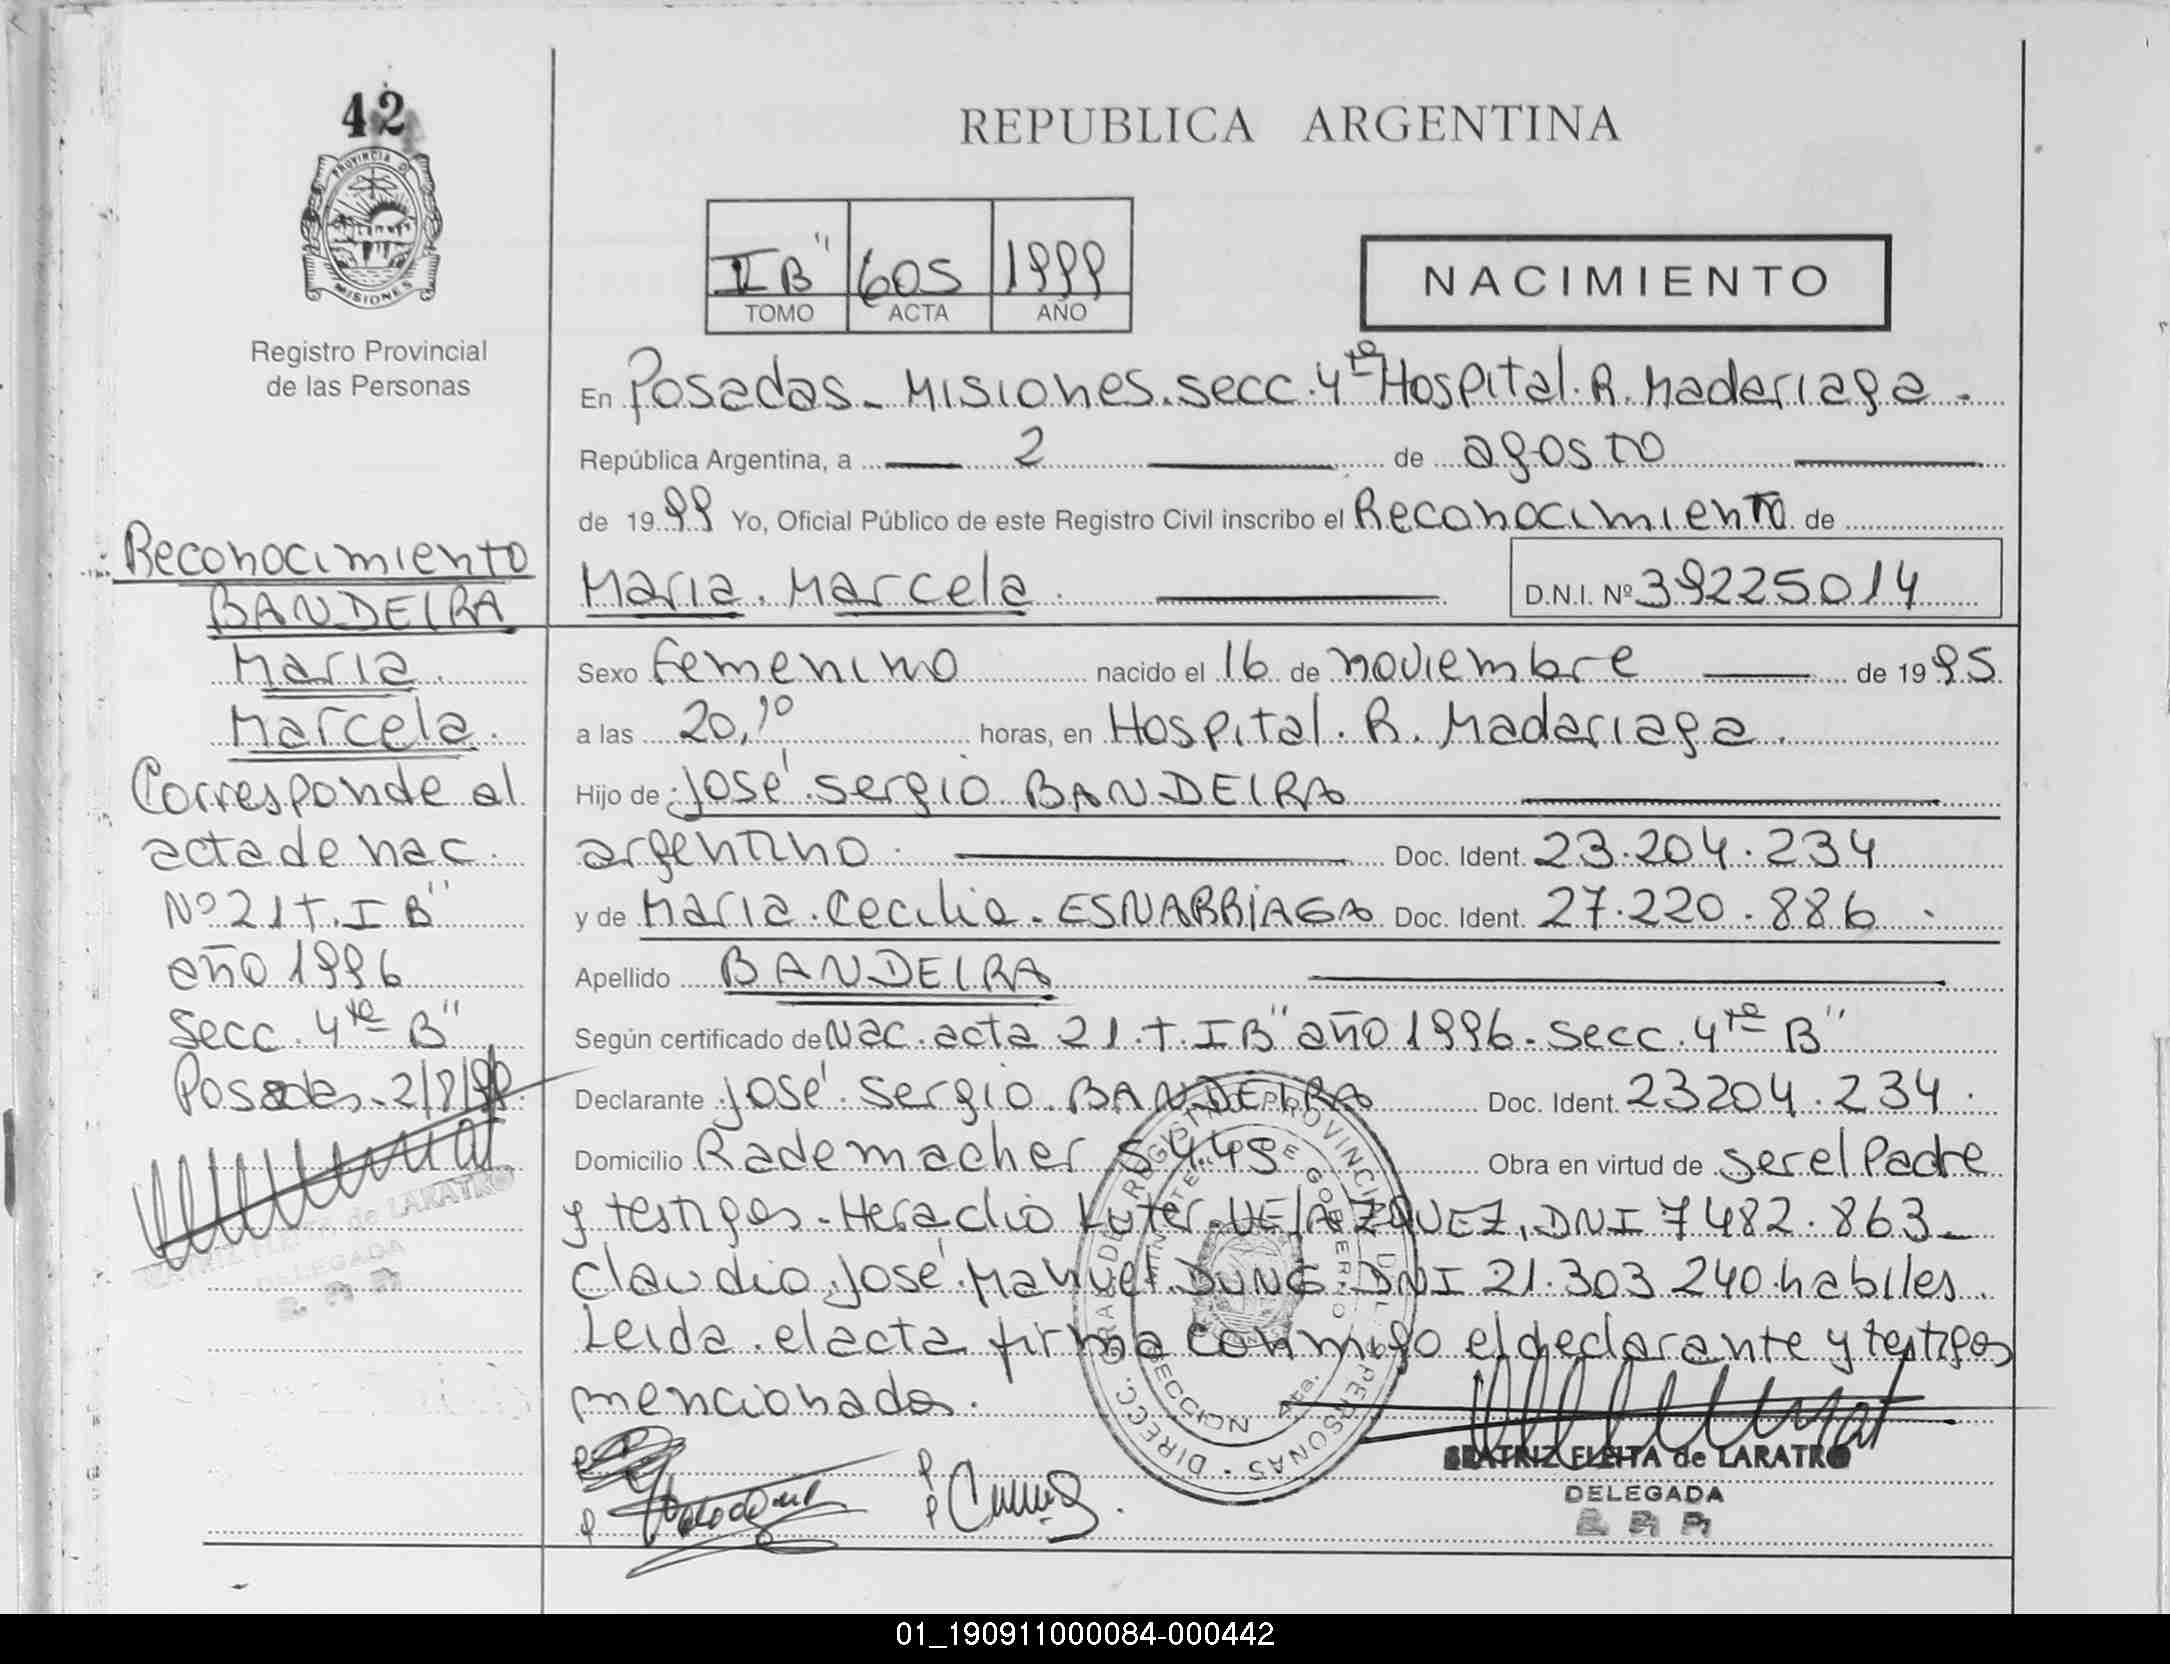 42
PROVINCIA DE
MISIONES
Registro Provincial
de las Personas
REPUBLICA ARGENTINA
II B" 605 1999
TOMO ACTA AÑO
NACIMIENTO
En Posadas - Misiones. secc. 4ta Hospital. R. Madariaga.
República Argentina, a 2 de agosto
de 1999 Yo, Oficial Público de este Registro Civil inscribo el Reconocimiento de
Maria. Marcela. D.N.I. Nº 39225014
Sexo Femenino nacido el 16 de noviembre de 1995
a las 20,10 horas, en Hospital. R. Madariaga.
Hijo de José Sergio BANDEIRA
argentino. Doc. Ident. 23.204.234
y de Maria. Cecilia. ESNARRIAGA Doc. Ident. 27.220.886.
Apellido BANDEIRA
Según certificado de Nac. acta 21. T. I B" año 1996. Secc. 4ta B"
Declarante José Sergio BANDEIRA Doc. Ident. 23204.234.
Domicilio Rademacher 5449 Obra en virtud de ser el Padre
y testigos - Heraclio Luter. VELAZQUEZ, DNI 7482.863_
Claudio José Manuel DUNG DNI 21.303 240 habiles.
Leida. el acta firma conmigo el declarante y testigos
mencionados.
Reconocimiento
BANDEIRA
Maria.
Marcela.
Corresponde al
acta de nac.
Nº 21 T. I B"
año 1996
Secc. 4ta B"
Posadas - 2/8/99.
BEATRIZ FLEITA de LARATRO
DELEGADA
DIRECC. GRAL. DE REGISTRO PROVINCIAL DE LAS PERSONAS
MINISTERIO DE GOBIERNO
SECCION 4ta.
BEATRIZ FLEITA de LARATRO
DELEGADA
01_190911000084-000442